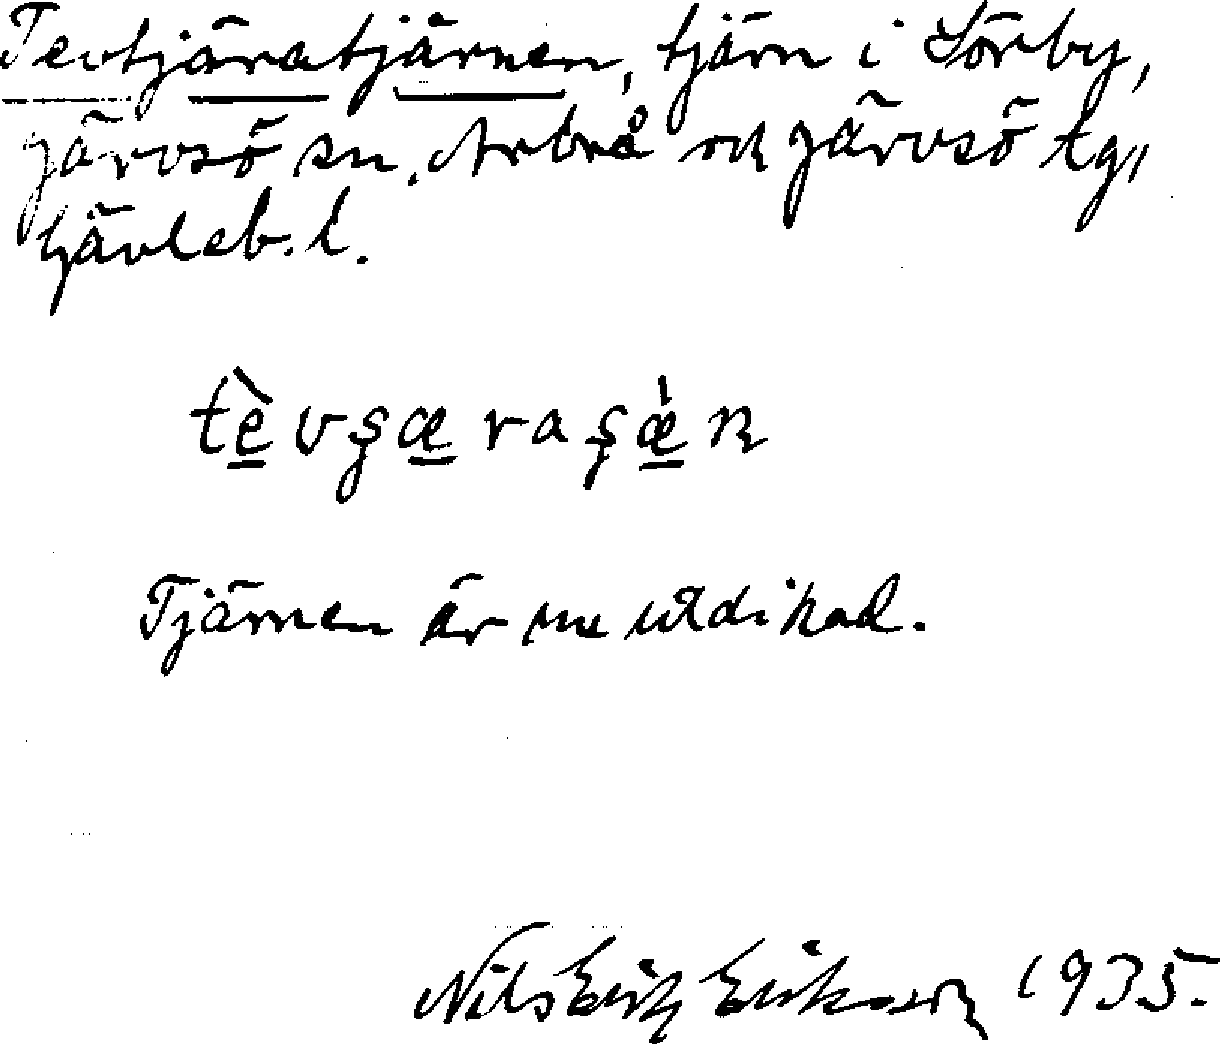 Tevtjäratjärnen, tjärn i Sörby,
Järvsö sn, Arbrå och Järvsö tg,
Gävleb. l.
tèvʂæraʂæ̀n
Tjärnen är nu utdikad.
Nils Erik Eriksson 1935.